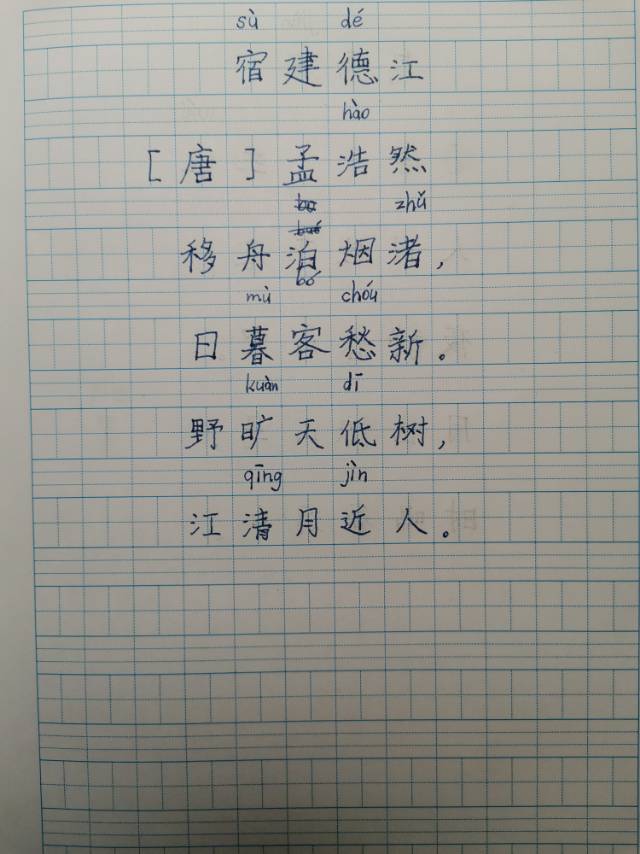 sù dé
宿建德江
hào
[唐]孟浩然
zhǔ
移舟泊烟渚,
bó
mù chóu
日暮客愁新。
kuàng dī
野旷天低树,
qīng jìn
江清月近人。